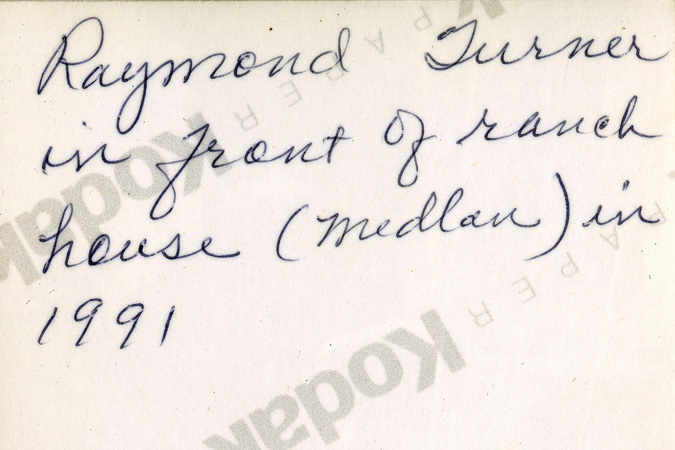 Raymond Turner
in front of ranch
house (Medlan) in
1991
Kodak PAPER
Kodak PAPER
K